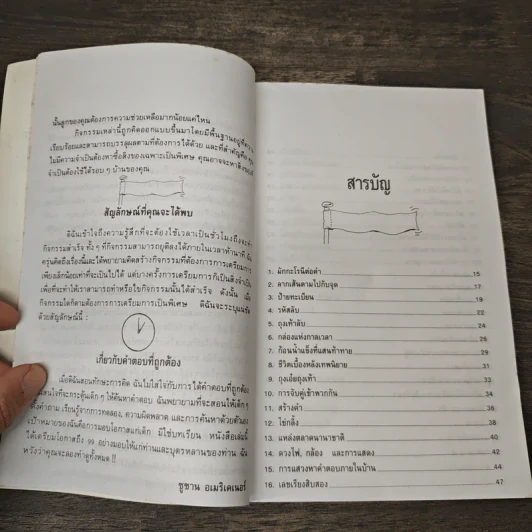 นั้นลูกของคุณต้องการความช่วยเหลือมากน้อยแค่ไหน
กิจกรรมเหล่านี้ถูกคิดออกแบบขึ้นมาโดยมีพื้นฐานอยู่ที่ความ
เรียบร้อยและสามารถบรรลุผลตามที่ต้องการได้ด้วย และที่สำคัญคือ
ไม่มีความจำเป็นต้องหาซื้อสิ่งของเฉพาะเป็นพิเศษ คุณอาจจะหาสิ่งของที่
จำเป็นต้องใช้ได้รอบๆ บ้านของคุณ
สัญลักษณ์ที่คุณจะได้พบ
ดิฉันเข้าใจถึงความรู้สึกที่จะต้องใช้เวลาเป็นชั่วโมงถึงจะทำ
กิจกรรมสำเร็จ ทั้ง ๆ ที่กิจกรรมสามารถยุติลงได้ภายในเวลาห้านาที ฉัน
ครุ่นคิดถึงเรื่องนี้และได้พยายามคิดสร้างกิจกรรมที่ต้องการการเตรียมการ
เพียงเล็กน้อยเท่าที่จะเป็นไปได้ แต่บางครั้งการเตรียมการก็เป็นสิ่งจำเป็น
เพื่อที่จะทำให้เราสามารถทำหรือใจกิจกรรมนั้นได้สำเร็จ ดังนั้น เมื่อ
กิจกรรมใดก็ตามต้องการการเตรียมการเป็นพิเศษ ดิฉันจะระบุแน่ชัด
ด้วยสัญลักษณ์นี้ :
เกี่ยวกับคำตอบที่ถูกต้อง
เมื่อดิฉันสอนทักษะการคิด ฉันไม่ใส่ใจกับการได้คำตอบที่ถูกต้อง
สนใจที่จะกระตุ้นเด็กๆ ให้ค้นหาคำตอบ ฉันพยายามที่จะสอนให้เด็กๆ
ตั้งคำถาม เรียนรู้จากการทดลอง, ความผิดพลาด และการค้นหาด้วยตัวเอง
เป้าหมายของฉันคือการมอบโอกาสแก่เด็ก มิใช่บทเรียน หนังสือเล่มนี้
ได้เตรียมโอกาสถึง 99 อย่างมอบให้แก่ท่านและบุตรหลานของท่าน ฉัน
หวังว่าคุณจะลองทำดูทั้งหมด !!
ซูซาน อเมริเคเนอร์
สารบัญ
1. มักกะโรนีต่อคำ 15
2. ลากเส้นตามไปกับจุด 17
3. ป้ายทะเบียน 19
4. รหัสลับ 22
5. ถุงเท้าลับ 24
6. กล่องแห่งกาลเวลา 26
7. ก้อนน้ำแข็งที่แสนท้าทาย 29
8. ชีวิตเบื้องหลังเทพนิยาย 31
9. ถุงเอ๋ยถุงเท้า 33
10. การจับคู่เข้าพวกกัน 34
11. สร้างคำ 36
12. ไข่กลิ้ง 38
13. แหล่งตลาดนานาชาติ 40
14. ดวงไฟ, กล้อง และการแสดง 42
15. การแสวงหาคำตอบภายในบ้าน 44
16. เลขเรียงสิบสอง 47